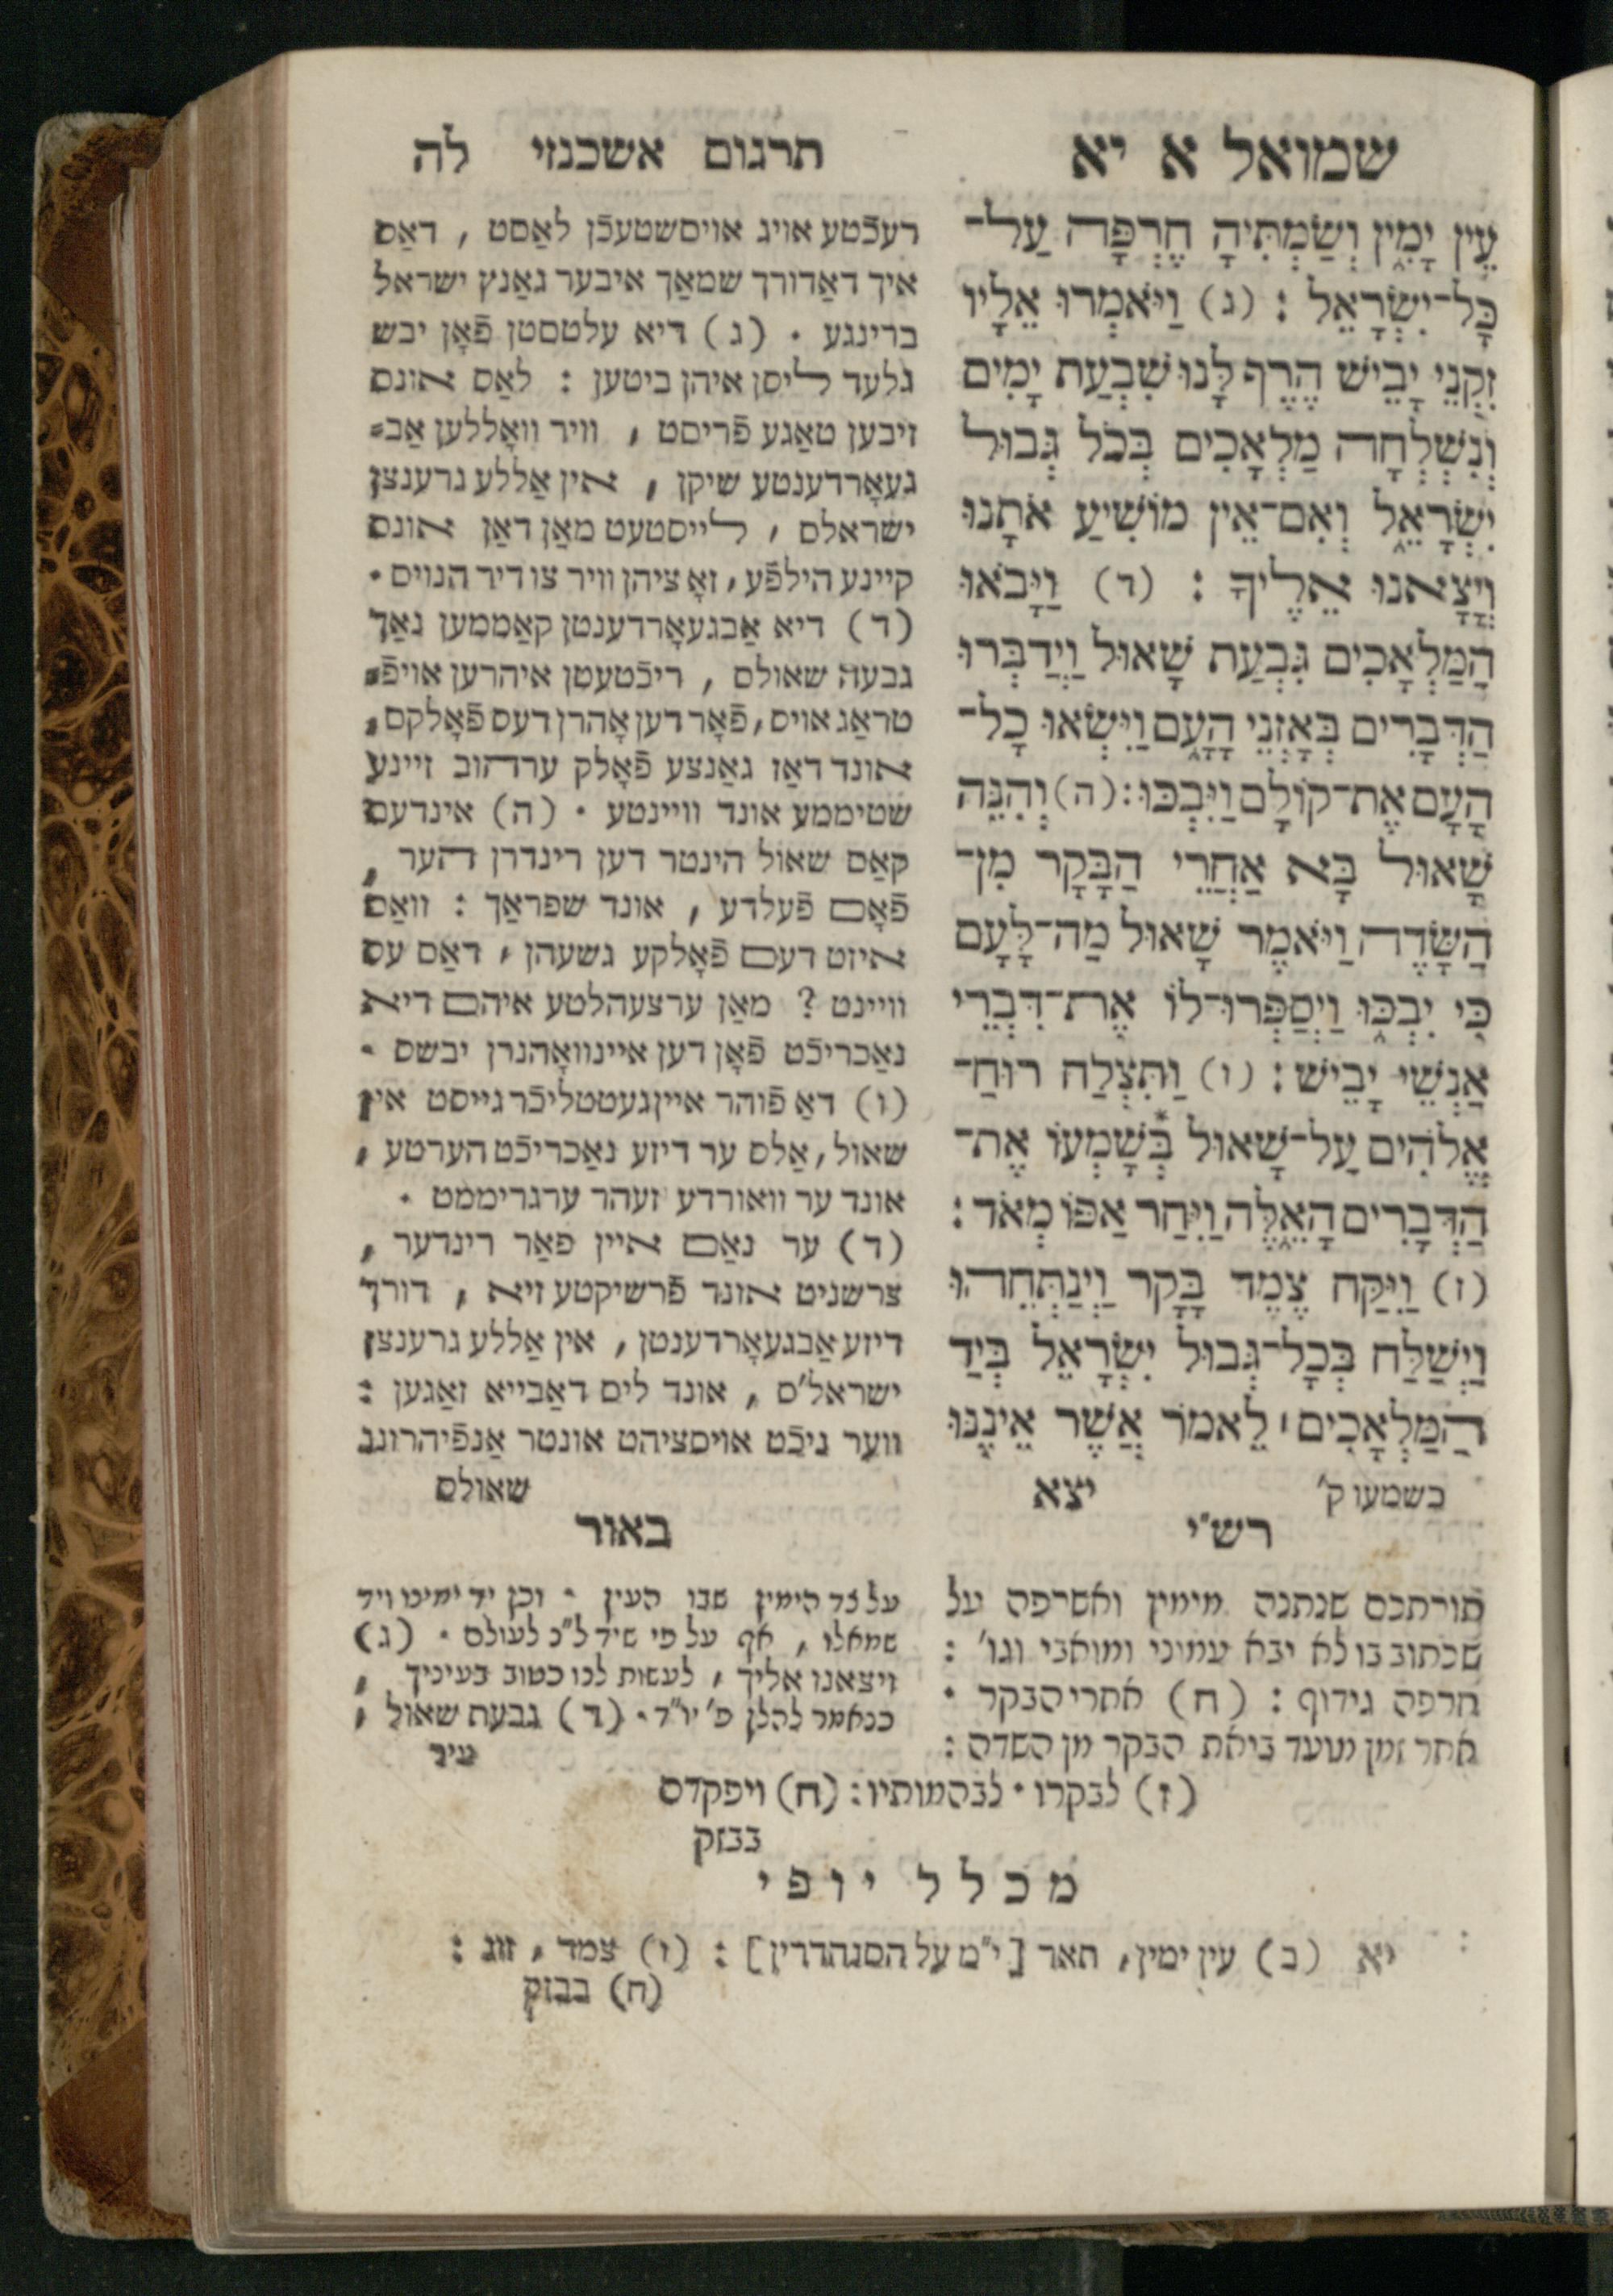 שמואל א יא
עֵין יָמִין וְשַׂמְתִּיהָ חֶרְפָּה עַל־
כָּל־יִשְׂרָאֵל : (ג) וַיֹּאמְרוּ אֵלָיו
זִקְנֵי יָבֵישׁ הֶרֶף לָנוּ שִׁבְעַת יָמִים
וְנִשְׁלְחָה מַלְאָכִים בְּכֹל גְּבוּל
יִשְׂרָאֵל וְאִם־אֵין מוֹשִׁיעַ אֹתָנוּ
וְיָצָאנוּ אֵלֶיךָ : (ד) וַיָּבֹאוּ
הַמַּלְאָכִים גִּבְעַת שָׁאוּל וַיְדַבְּרוּ
הַדְּבָרִים בְּאָזְנֵי הָעָם וַיִּשְׂאוּ כָל־
הָעָם אֶת־קוֹלָם וַיִּבְכּוּ : (ה) וְהִנֵּה
שָׁאוּל בָּא אַחֲרֵי הַבָּקָר מִן־
הַשָּׂדֶה וַיֹּאמֶר שָׁאוּל מַה־לָּעָם
כִּי יִבְכּוּ וַיְסַפְּרוּ־לוֹ אֶת־דִּבְרֵי
אַנְשֵׁי יָבֵישׁ : (ו) וַתִּצְלַח רוּחַ־
אֱלֹהִים עַל־שָׁאוּל *בְּשָׁמְעוֹ אֶת־
הַדְּבָרִים הָאֵלֶּה וַיִּחַר אַפּוֹ מְאֹד :
(ז) וַיִּקַּח צֶמֶד בָּקָר וַיְנַתְּחֵהוּ
וַיְשַׁלַּח בְּכָל־גְּבוּל יִשְׂרָאֵל בְּיַד
הַמַּלְאָכִים ׀ לֵאמֹר אֲשֶׁר אֵינֶנּוּ
כשמעו ק' יצא
תרגום אשכנזי לה
רעכֿטע אויג אויסשטעכֿן לאַסט , דאַס
איך דאַדורך שמאַך איבער גאַנץ ישראל
ברינגע . (ג) דיא עלטסטן פֿאָן יבש
גלעד ליסן איהן ביטען : לאַס אונס
זיבען טאַגע פֿריסט , וויר וואָללען אַב=
געאָרדענטע שיקן , אין אַללע גרענצן
ישראלס , לייסטעט מאַן דאַן אונס
קיינע הילפֿע , זאָ ציהן וויר צו דיר הנוים .
(ד) דיא אַבגעאָרדענטן קאַממען נאַך
גבעה שאולס , ריכֿטעטן איהרען אויפֿ=
טראַג אויס , פֿאָר דען אָהרן דעס פֿאָלקס ,
אונד דאַז גאַנצע פֿאָלק ערהוב זיינע
שטיממע אונד וויינטע . (ה) אינדעם
קאַם שאול הינטר דען רינדרן הער ,
פֿאָם פֿעלדע , אונד שפראַך : וואַס
איזט דעם פֿאָלקע גשעהן , דאַס עס
וויינט ? מאַן ערצעהלטע איהם דיא
נאַכריכֿט פֿאָן דען איינוואָהנרן יבשס .
(ו) דאַ פֿוהר איין געטטליכֿר גייסט אין
שאול , אַלס ער דיזע נאַכריכֿט הערטע ,
אונד ער וואורדע זעהר ערגריממט .
(ד) ער נאַם איין פאַר רינדער ,
צרשניט אונד פֿרשיקטע זיא , דורך
דיזע אַבגעאָרדענטן , אין אַללע גרענצן
ישראל'ס , אונד ליס דאַבייא זאַגען :
ווער ניכֿט אויסציהט אונטר אַנפֿיהרונג
שאולס
רש"י
תורתכם שנתנה מימין ואשרפה על
שכתוב בו לא יבא עמוני ומואבי וגו' :
חרפה גידוף : (ח) אחרי הבקר .
אחר זמן מועד ביאת הבקר מן השדה :
באור
על צד הימין שבו העין . וכן יד ימינו ויד
שמאלו , אף על פי שיד ל"נ לעולם . (ג)
ויצאנו אליך , לעשות לנו כטוב בעיניך ,
כנאמר להלן פ' יו"ד . (ד) גבעת שאול ,
עיר
(ז) לבקרו . לבהמותיו : (ח) ויפקדם
בבזק
מכלל יופי
יא (ב) עין ימין , תאר [י"מ על הסנהדרין] : (ז) צמד , זוג :
(ח) בבזק